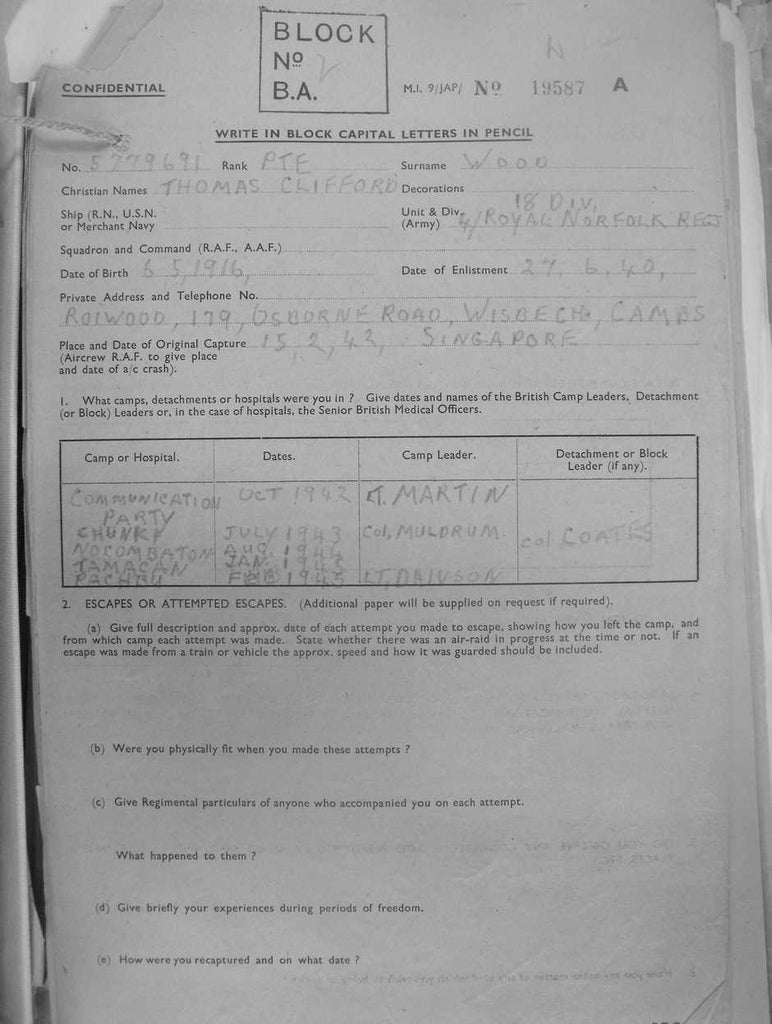 BLOCK
Nº
B.A.
CONFIDENTIAL
M.I. 9/JAP/ Nº 19587 A
WRITE IN BLOCK CAPITAL LETTERS IN PENCIL
No. 5779691 Rank PTE Surname WOOD
Christian Names THOMAS CLIFFORD Decorations
18 DIV,
Ship (R.N., U.S.N. or Merchant Navy Unit & Div. (Army) 4/ROYAL NORFOLK REGT
Squadron and Command (R.A.F., A.A.F.)
Date of Birth 6 5, 1916, Date of Enlistment 27, 6, 40,
Private Address and Telephone No.
ROLWOOD, 179, OSBORNE ROAD, WISBECH, CAMBS
Place and Date of Original Capture 15, 2, 42, SINGAPORE
(Aircrew R.A.F. to give place
and date of a/c crash).
1. What camps, detachments or hospitals were you in ? Give dates and names of the British Camp Leaders, Detachment
(or Block) Leaders or, in the case of hospitals, the Senior British Medical Officers.
Camp or Hospital. Dates. Camp Leader. Detachment or Block Leader (if any).
COMMUNICATION OCT 1942 LT. MARTIN
PARTY
CHUNKI JULY 1943 Col, MULDRUM. col COATES
NOCOMBATON AUG. 1944
TAMACAN JAN. 1945
FEB 1945 LT, DAWSON
2. ESCAPES OR ATTEMPTED ESCAPES. (Additional paper will be supplied on request if required).
(a) Give full description and approx. date of each attempt you made to escape, showing how you left the camp, and
from which camp each attempt was made. State whether there was an air-raid in progress at the time or not. If an
escape was made from a train or vehicle the approx. speed and how it was guarded should be included.
(b) Were you physically fit when you made these attempts ?
(c) Give Regimental particulars of anyone who accompanied you on each attempt.
What happened to them ?
(d) Give briefly your experiences during periods of freedom.
(e) How were you recaptured and on what date ?